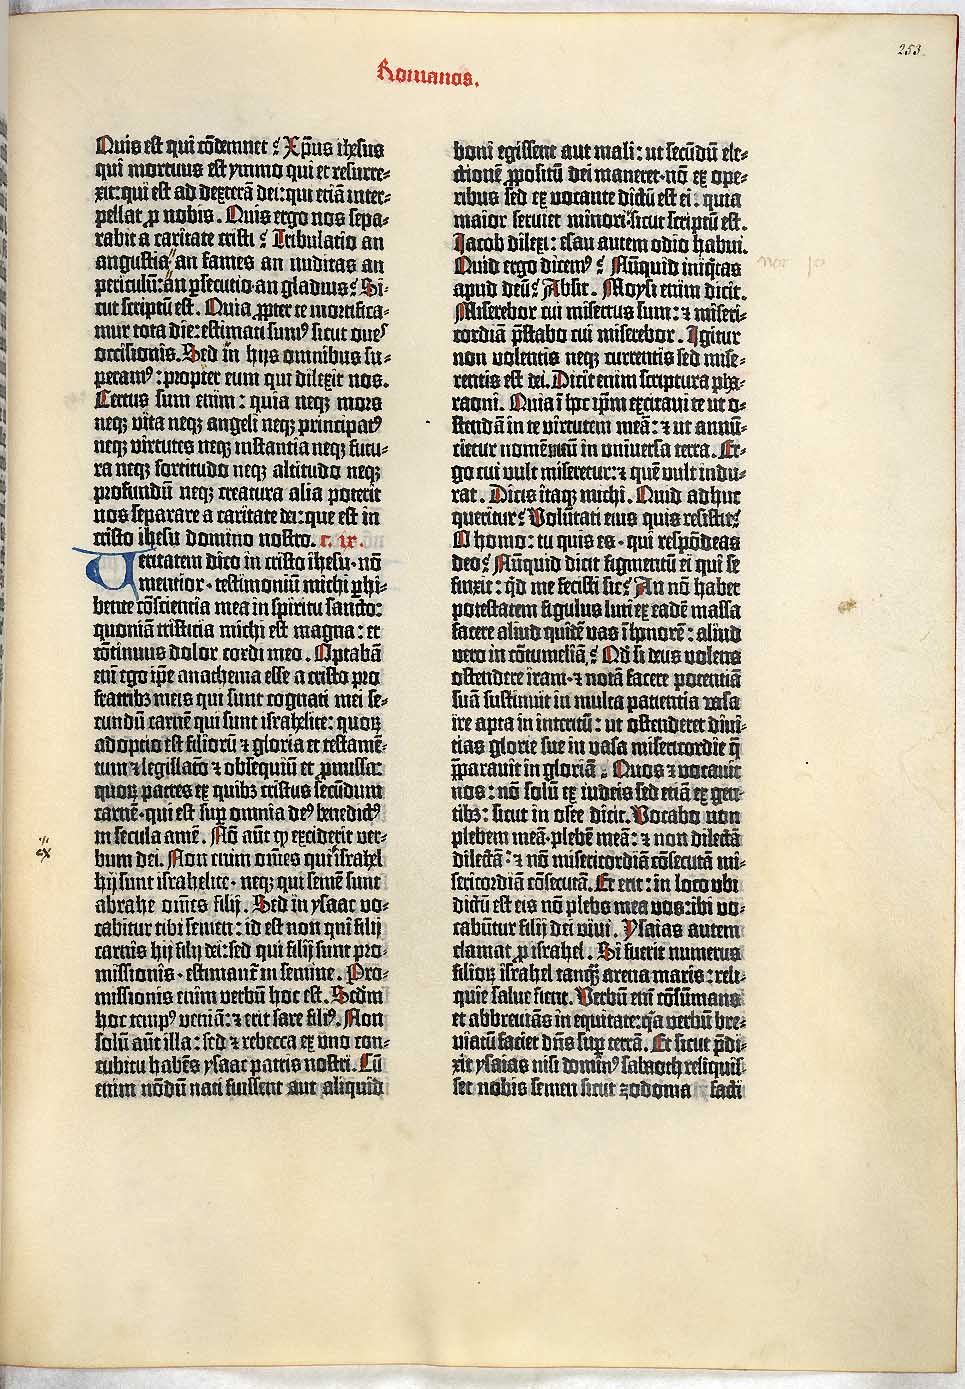 253
Romanos.
Quis est qui cōdemnet? Xp̄us ihesus
qui mortuus est ymmo qui et resurre-
xit: qui est ad dexterā dei: qui etiā inter-
pellat ꝓ nobis. Quis ergo nos sepa-
rabit a caritate cristi? Tribulatio an
angustia an fames an nuditas an
periculū: an ꝑsecutio·an gladius? Si-
cut scriptū est. Quia ꝓpter te mortifica-
mur tota die: estimati sumꝰ sicut oues
occisionis. Sed in hijs omnibus su-
peramꝰ: propter eum qui dilexit nos.
Certus sum enim: quia neqꝫ mors
neqꝫ vita neqꝫ angeli neqꝫ principatꝰ
neqꝫ virtutes neqꝫ instantia neqꝫ futu-
ra neqꝫ fortitudo neqꝫ altitudo neqꝫ
profundū neqꝫ creatura alia poterit
nos separare a caritate dei: que est in
cristo ihesu domino nostro. c. ix.
Veritatem dico in cristo ihesu·nō
mentior·testimoniū michi ꝑhi-
bente cōscientia mea in spiritu sancto:
quoniā tristicia michi est magna: et
cōtinuus dolor cordi meo. Optabā
eni ego ip̄e anathema esse a cristo pro
fratribꝫ meis qui sunt cognati mei se-
cundū carnē qui sunt israhelite: quoꝝ
adoptio est filiorū ⁊ gloria et testamē-
tum ⁊ legislatō ⁊ obsequiū et ꝓmissa:
quoꝝ patres ex quibꝫ cristus secūdum
carnē·qui est sup omnia deꝰ benedictꝰ
in secula amē. Nō aūt ꝙ exciderit ver-
bum dei. Non enim om̄es qui israhel
hij sunt israhelite·neqꝫ qui semē sunt
abrahe om̄es filij. Sed in ysaac vo-
cabitur tibi semen: id est non qui filij
carnis hij filij dei: sed qui filij sunt pro-
missionis·estimant̄ in semine. Pro-
missionis enim verbū hoc est. Scdm̄
hoc tempꝰ veniā: ⁊ erit sare filiꝰ. Non
solū aūt illa: sed ⁊ rebecca ex vno con-
cubitu habēs ysaac patris nostri. Cū
enim nōdū nati fuissent aut aliquid
boni egissent aut mali: ut secūdū ele-
ctionē ꝓpositū dei maneret·nō ex ope-
ribus sed ex vocante dictū est ei: quia
maior seruiet minori·sicut scriptū est.
Iacob dilexi: esau autem odio habui.
Quid ergo dicemꝰ? Nūquid iniq̄tas
apud deū? Absit. Moysi enim dicit.
Miserebor cui misertus sum: ⁊ miseri-
cordiā p̄stabo cui miserebor. Igitur
non volentis neqꝫ currentis sed mise-
rentis est dei. Dicit enim scriptura pha-
raoni. Quia ī hoc ip̄m excitaui te ut o-
stendā in te virtutem meā: ⁊ ut annū-
cietur nomē meū in uniuersa terra. Er-
go cui vult miseretur: ⁊ quē vult indu-
rat. Dicis itaqꝫ michi. Quid adhuc
queritur? Volūtati eius quis resistit?
O homo: tu quis es·qui respōdeas
deo? Nūquid dicit figmentū ei qui se
finxit: q̄d me fecisti sic? An nō habet
potestatem figulus luti ex eadē massa
facere aliud quidē vas ī honorē: aliud
vero in cōtumeliā? Qd̄ si deus volens
ostendere iram·⁊ notā facere potentiā
suā sustinuit in multa patientia vasa
ire apta in interitū: ut ostenderet diui-
tias glorie sue in vasa misericordie q̄
p̄parauit in gloriā? Quos ⁊ vocauit
nos: nō solū ex iudeis sed etiā ex gen-
tibꝫ: sicut in osee dicit. Vocabo non
plebem meā·plebē meā: ⁊ non dilectā
dilectā: ⁊ nō misericordiā cōsecutā mi-
sericordiā cōsecutā. Et erit: in loco vbi
dictū est eis nō plebs mea vos: ibi vo-
cabūtur filij dei viui. Ysaias autem
clamat ꝓ israhel. Si fuerit numerus
filioꝝ israhel tanq̄ arena maris: reli-
quie salue fient. Verbū eni cōsūmans
et abbreuiās in equitate: q̄a verbū bre-
uiatū faciet dn̄s sup terrā. Et sicut p̄di-
xit ysaias nisi dominꝰ sabaoth reliquis-
set nobis semen sicut zodoma facti